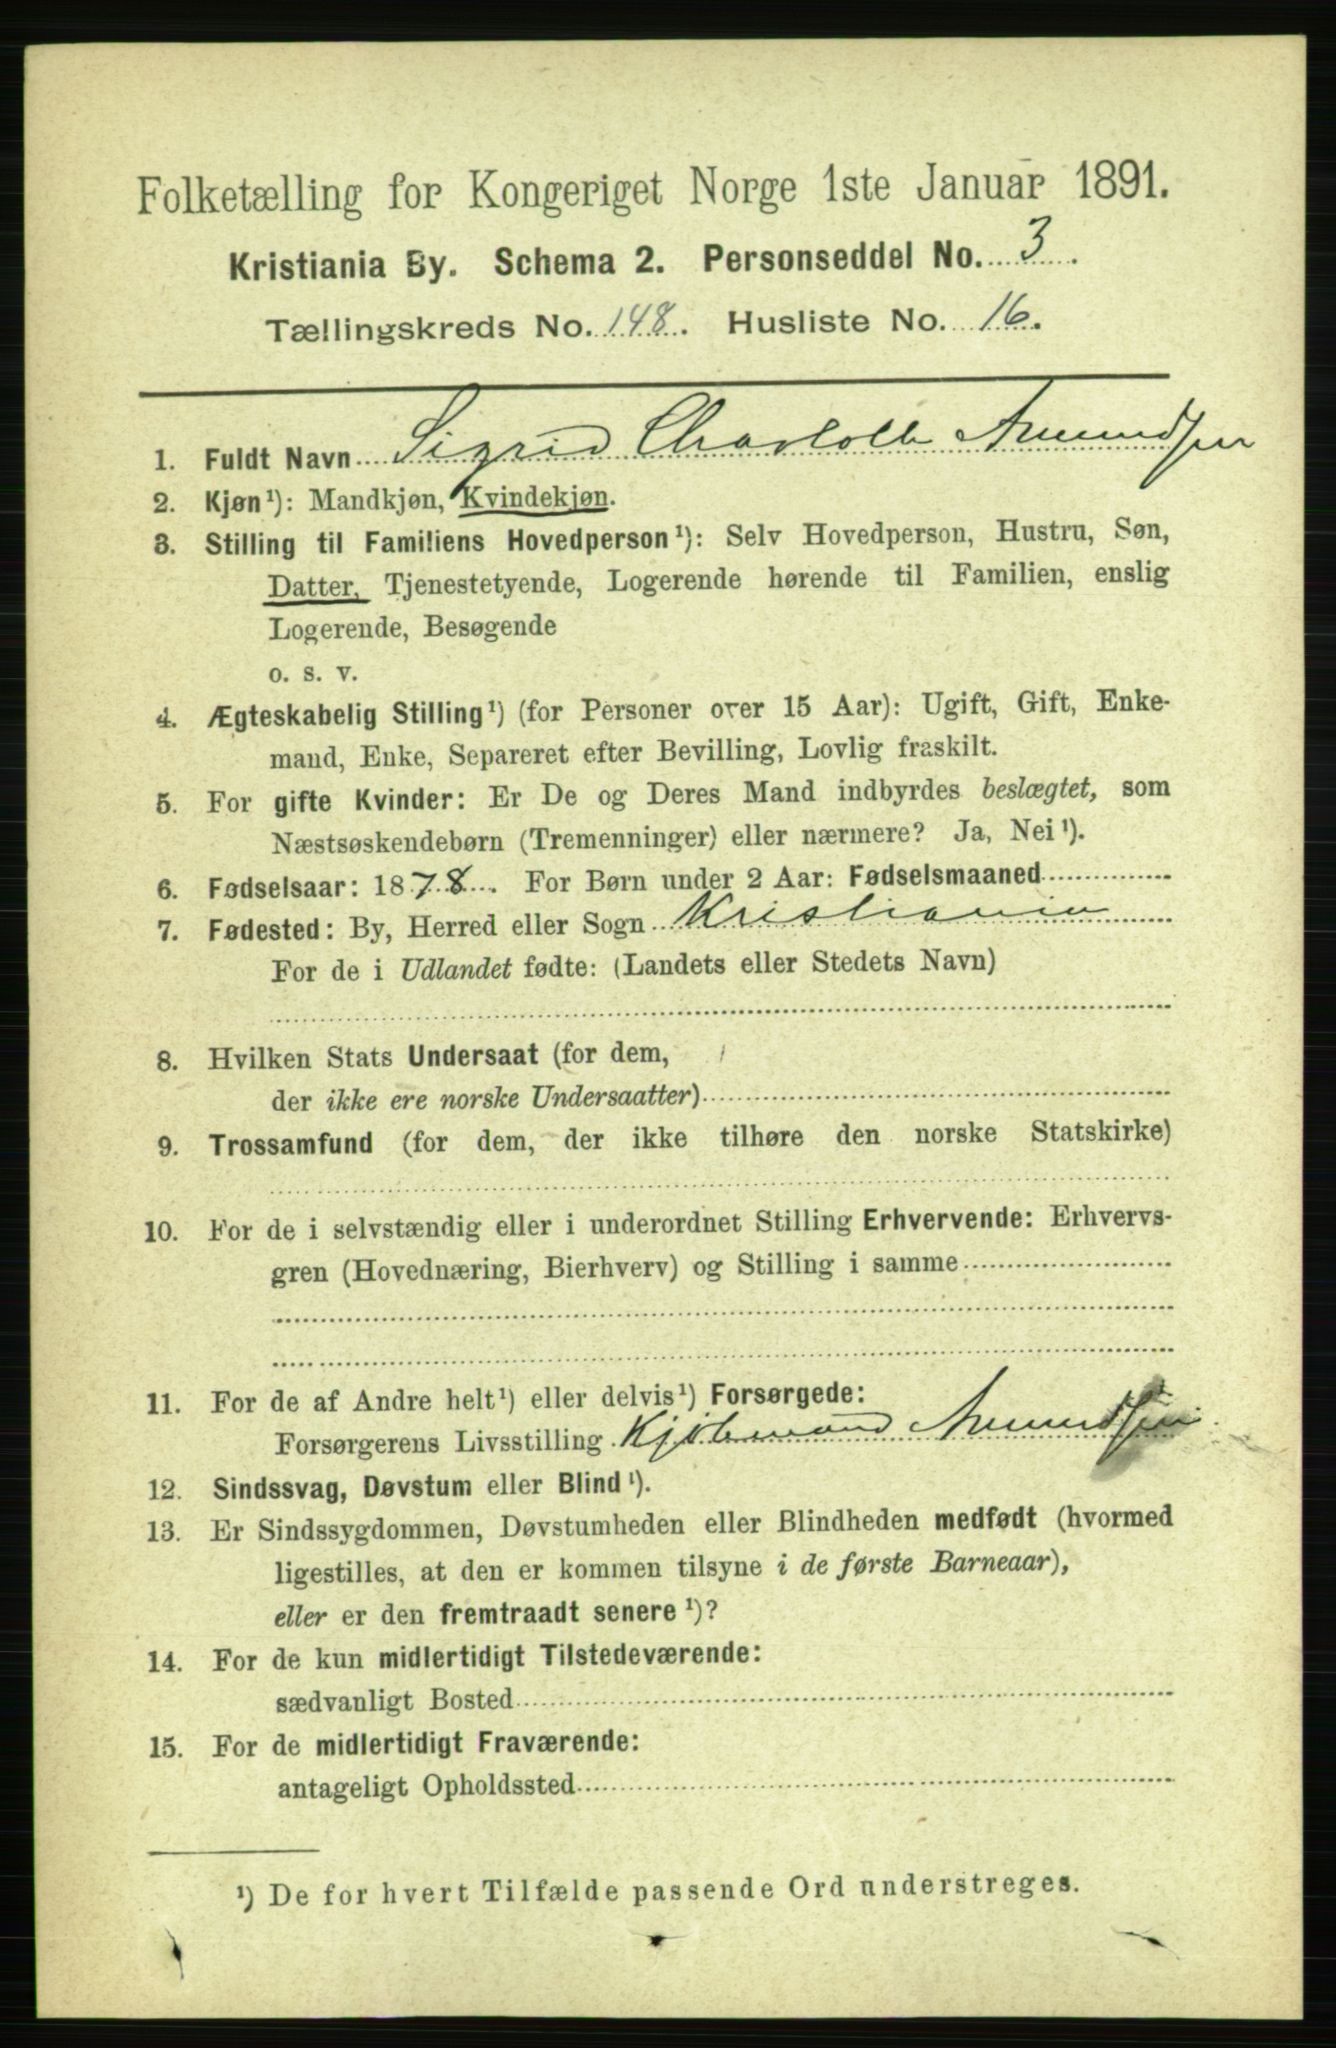 Folketælling for Kongeriget Norge 1ste Januar 1891.
Kristiania By. Schema 2. Personseddel No. 3.
Tællingskreds No. 148. Husliste No. 16.
1. Fuldt Navn Sigrid Charlotte Amundsen
2. Kjøn¹): Mandkjøn, Kvindekjøn.
3. Stilling til Familiens Hovedperson¹): Selv Hovedperson, Hustru, Søn,
Datter, Tjenestetyende, Logerende hørende til Familien, enslig
Logerende, Besøgende
o. s. v.
4. Ægteskabelig Stilling¹) (for Personer over 15 Aar): Ugift, Gift, Enke-
mand, Enke, Separeret efter Bevilling, Lovlig fraskilt.
5. For gifte Kvinder: Er De og Deres Mand indbyrdes beslægtet, som
Næstsøskendebørn (Tremenninger) eller nærmere? Ja, Nei¹).
6. Fødselsaar: 1878. For Børn under 2 Aar: Fødselsmaaned
7. Fødested: By, Herred eller Sogn Kristiania
For de i Udlandet fødte: (Landets eller Stedets Navn)
8. Hvilken Stats Undersaat (for dem,
der ikke ere norske Undersaatter)
9. Trossamfund (for dem, der ikke tilhøre den norske Statskirke)
10. For de i selvstændig eller i underordnet Stilling Erhvervende: Erhvervs-
gren (Hovednæring, Bierhverv) og Stilling i samme
11. For de af Andre helt¹) eller delvis¹) Forsørgede:
Forsørgerens Livsstilling Kjøbmand Amundsen
12. Sindssvag, Døvstum eller Blind¹).
13. Er Sindssygdommen, Døvstumheden eller Blindheden medfødt (hvormed
ligestilles, at den er kommen tilsyne i de første Barneaar),
eller er den fremtraadt senere¹)?
14. For de kun midlertidigt Tilstedeværende:
sædvanligt Bosted
15. For de midlertidigt Fraværende:
antageligt Opholdssted
¹) De for hvert Tilfælde passende Ord understreges.